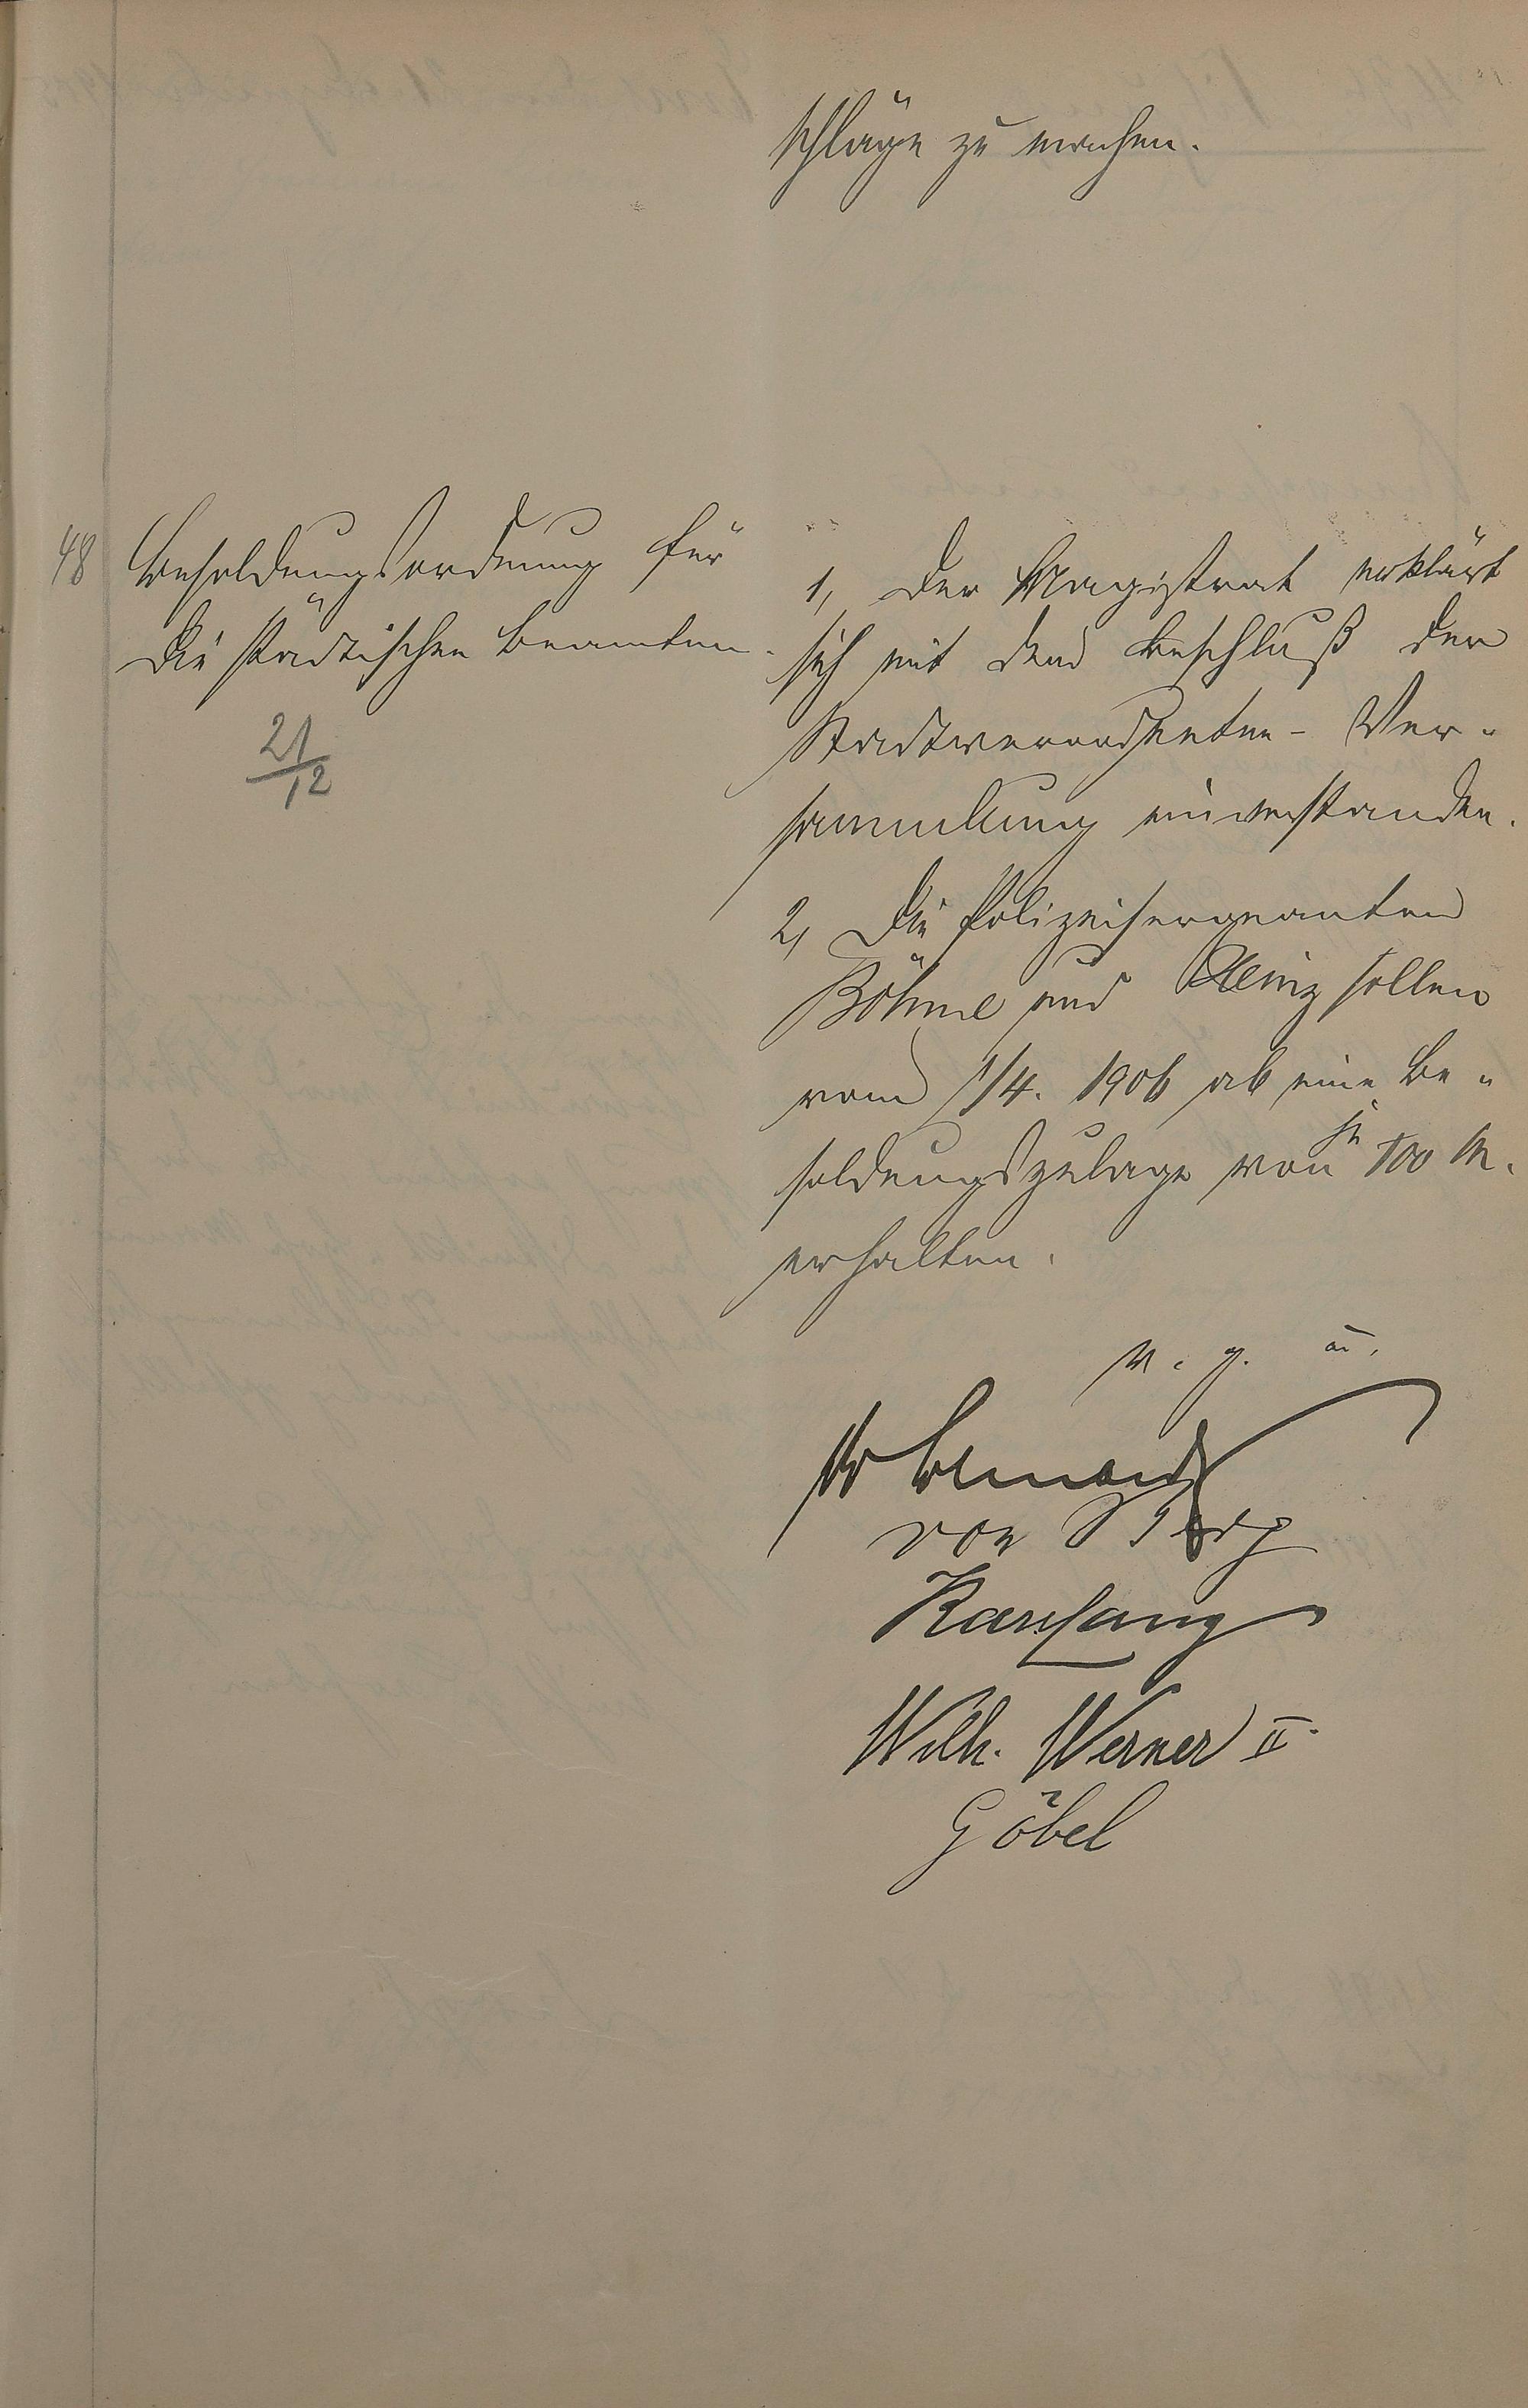 schläge zu machen.
48
Besoldungsordnung für
die städtischen Beamten.
21/12
1, Der Magistrat erklärt
sich mit dem Beschluß der
Stadtverordneten-Ver-
sammlung einverstanden.
2, Die Polizeisergeanten
Böhme und Heinz sollen
vom 1/4. 1906 ab eine Be-
soldungszulage von je 100 M.
erhalten.
v. g. u.
von
Wilh. Werner II.
Göbel